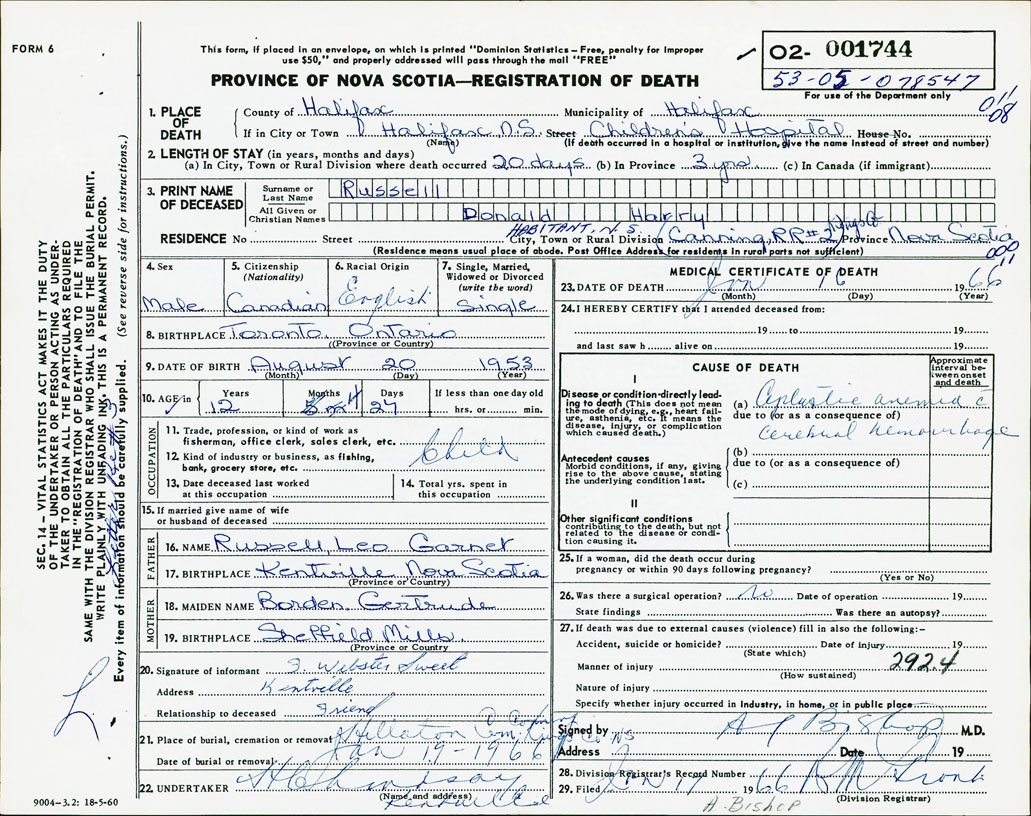 FORM 6
This form, if placed in an envelope, on which is printed "Dominion Statistics – Free, penalty for improper
use $50," and properly addressed will pass through the mail "FREE"
PROVINCE OF NOVA SCOTIA—REGISTRATION OF DEATH
02- 001744
53-05-078547
For use of the Department only
011
08
1. PLACE OF DEATH
County of Halifax Municipality of Halifax
If in City or Town Halifax N.S. Street Childrens Hospital House No.
(Name) (If death occurred in a hospital or institution, give the name instead of street and number)
2. LENGTH OF STAY (in years, months and days)
(a) In City, Town or Rural Division where death occurred 20 days (b) In Province 3 yrs. (c) In Canada (if immigrant)
3. PRINT NAME OF DECEASED
Surname or Last Name Russell
All Given or Christian Names Donald Harry
HABITANT, N.S.
RESIDENCE No Street City, Town or Rural Division Canning, RR#2 Kings Co Province Nova Scotia
(Residence means usual place of abode. Post Office Address for residents in rural parts not sufficient)
000
11
4. Sex
Male
5. Citizenship (Nationality)
Canadian
6. Racial Origin
3
English
7. Single, Married, Widowed or Divorced (write the word)
Single
8. BIRTHPLACE Toronto, Ontario
(Province or Country)
9. DATE OF BIRTH August 20 1953
(Month) (Day) (Year)
10. AGE in
Years 12
Months 4
Days 27
If less than one day old
hrs. or min.
OCCUPATION
11. Trade, profession, or kind of work as
fisherman, office clerk, sales clerk, etc.
12. Kind of industry or business, as fishing,
bank, grocery store, etc.
Child
13. Date deceased last worked
at this occupation
14. Total yrs. spent in
this occupation
15. If married give name of wife
or husband of deceased
FATHER
16. NAME Russell, Leo Garnet
17. BIRTHPLACE Kentville Nova Scotia
(Province or Country)
MOTHER
18. MAIDEN NAME Borden, Gertrude
19. BIRTHPLACE Sheffield Mills
(Province or Country
20. Signature of informant G. Webster Sweet
Address Kentville
Relationship to deceased Friend
21. Place of burial, cremation or removal Hillaton Cem. Kings Co NS
Date of burial or removal Jan 19-1966
22. UNDERTAKER
(Name and address)
Kentville
9004–3.2: 18-5-60
MEDICAL CERTIFICATE OF DEATH
23. DATE OF DEATH Jan 16 1966
(Month) (Day) (Year)
24. I HEREBY CERTIFY that I attended deceased from:
19 to 19
and last saw h alive on 19
CAUSE OF DEATH
Approximate interval between onset and death
I
Disease or condition directly leading to death (This does not mean
the mode of dying, e.g., heart failure, asthenia, etc. It means the
disease, injury, or complication
which caused death.)
(a) Aplastic anemia c
due to (or as a consequence of)
cerebral hemorrhage
Antecedent causes
Morbid conditions, if any, giving
rise to the above cause, stating
the underlying condition last.
(b)
due to (or as a consequence of)
(c)
II
Other significant conditions
contributing to the death, but not
related to the disease or condition causing it.
25. If a woman, did the death occur during
pregnancy or within 90 days following pregnancy?
(Yes or No)
26. Was there a surgical operation? No Date of operation 19
State findings Was there an autopsy?
27. If death was due to external causes (violence) fill in also the following:–
Accident, suicide or homicide? Date of injury 19
(State which)
Manner of injury 292.4
(How sustained)
Nature of injury
Specify whether injury occurred in industry, in home, or in public place
Signed by A J Bishop M.D.
Address Date 19
28. Division Registrar's Record Number
29. Filed Jan 17 1966
(Division Registrar)
A. BISHOP
SEC. 14 – VITAL STATISTICS ACT MAKES IT THE DUTY
OF THE UNDERTAKER OR PERSON ACTING AS UNDERTAKER TO OBTAIN ALL THE PARTICULARS REQUIRED
IN THE "REGISTRATION OF DEATH" AND TO FILE THE
SAME WITH THE DIVISION REGISTRAR WHO SHALL ISSUE THE BURIAL PERMIT.
WRITE PLAINLY WITH UNFADING INK. THIS IS A PERMANENT RECORD.
Every item of information should be carefully supplied. (See reverse side for instructions.)